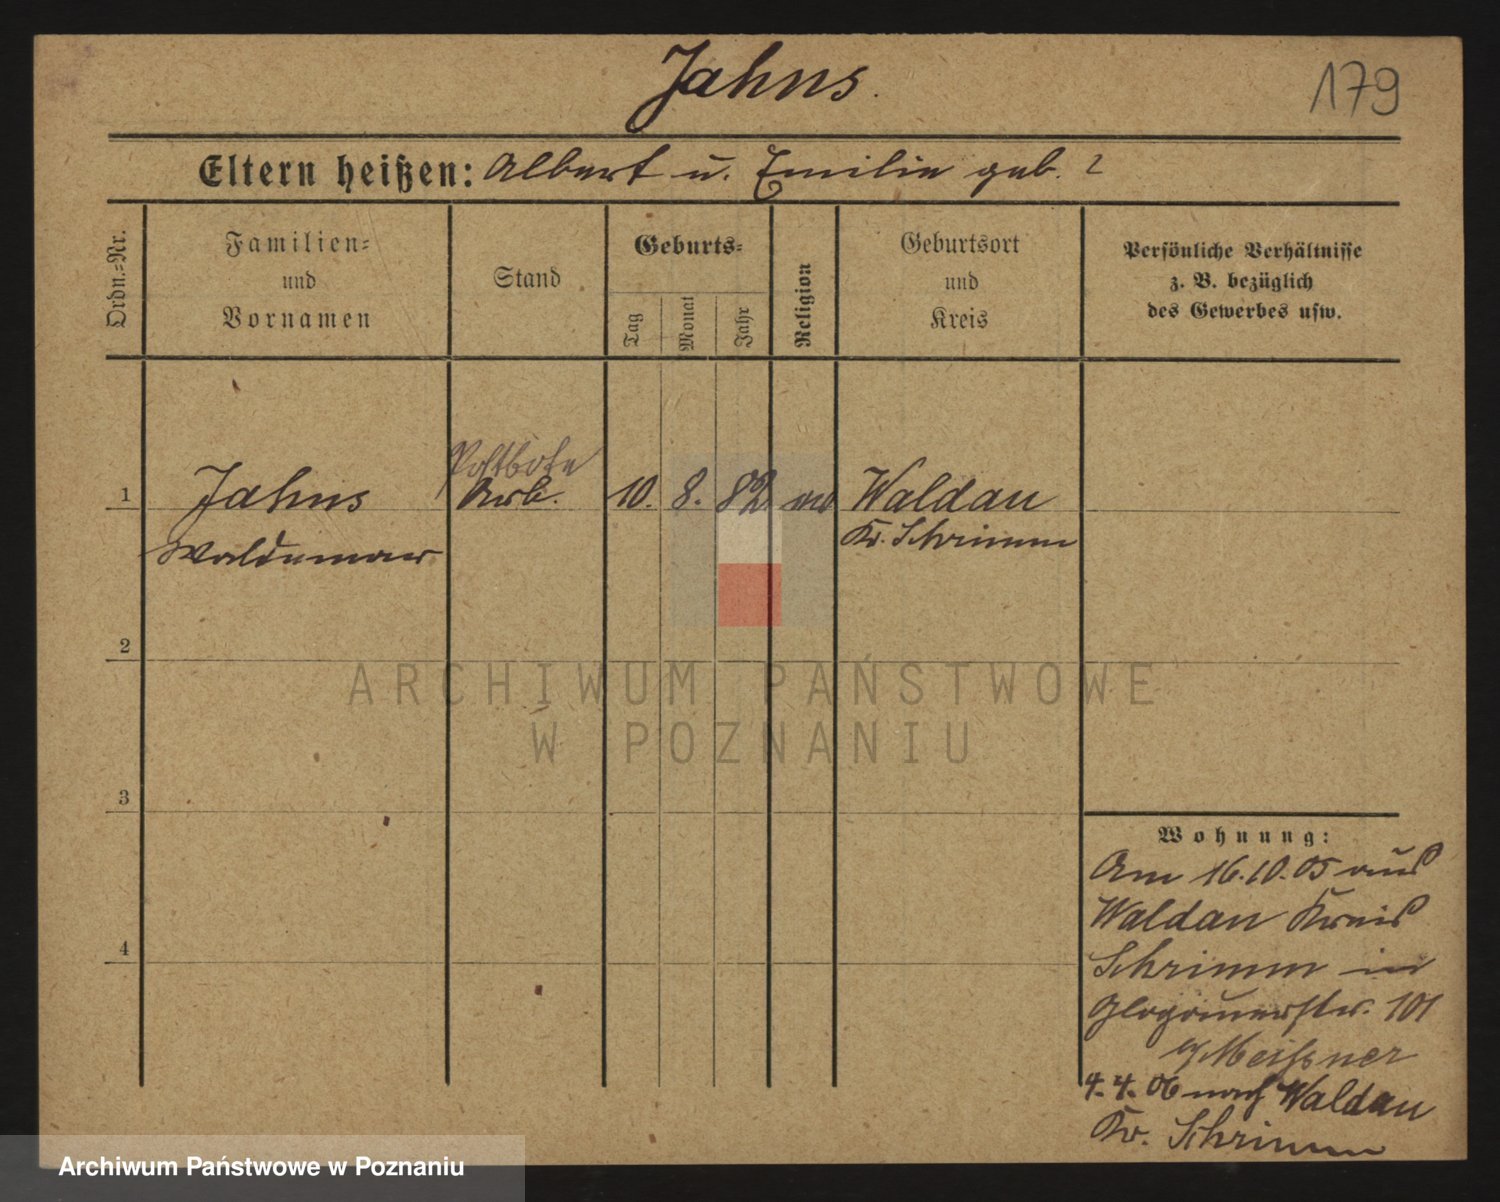 Jahns.
179
Eltern heißen: Albert u. Emilie geb. ?
Ordn.=Nr.
Familien=
und
Vornamen
Stand
Geburts=
Tag
Monat
Jahr
Religion
Geburtsort
und
Kreis
Persönliche Verhältnisse
z. B. bezüglich
des Gewerbes usw.
Postbote
1 Jahns Arb. 10. 8. 82 ev Waldau
Waldemar Kr. Schrimm
2
3
4
Wohnung:
Am 16.10.05 aus
Waldau Kreis
Schrimm in
Glogauerstr. 101
b/Meißner
4.4.06 nach Waldau
Kr. Schrimm
ARCHIWUM PAŃSTWOWE
W POZNANIU
Archiwum Państwowe w Poznaniu